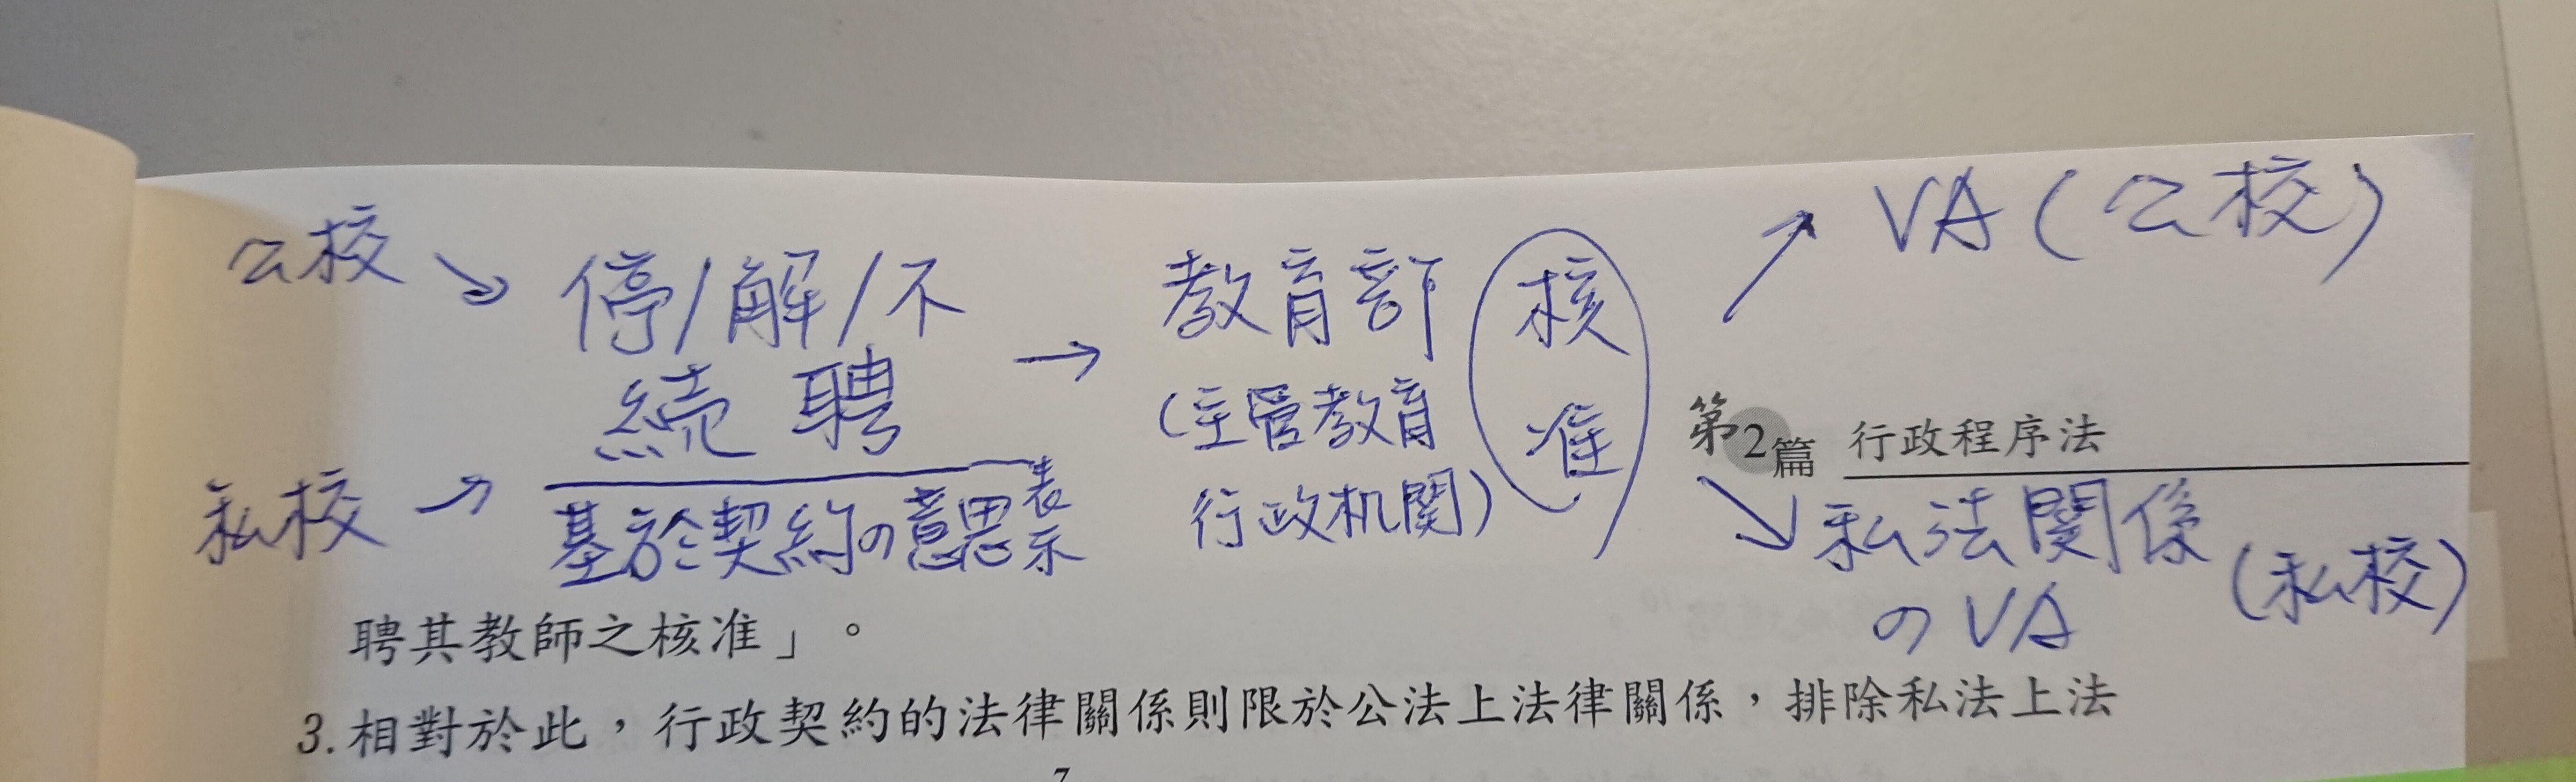 公校 ↘ 停/解/不
続聘
私校 → 基於契約の意思表示
→ 教育部
(主管教育
行政机関)
核
准
↗ VA(公校)
第2篇 行政程序法
↘ 私法関係
のVA (私校)
聘其教師之核准」。
3.相對於此，行政契約的法律關係則限於公法上法律關係，排除私法上法
7